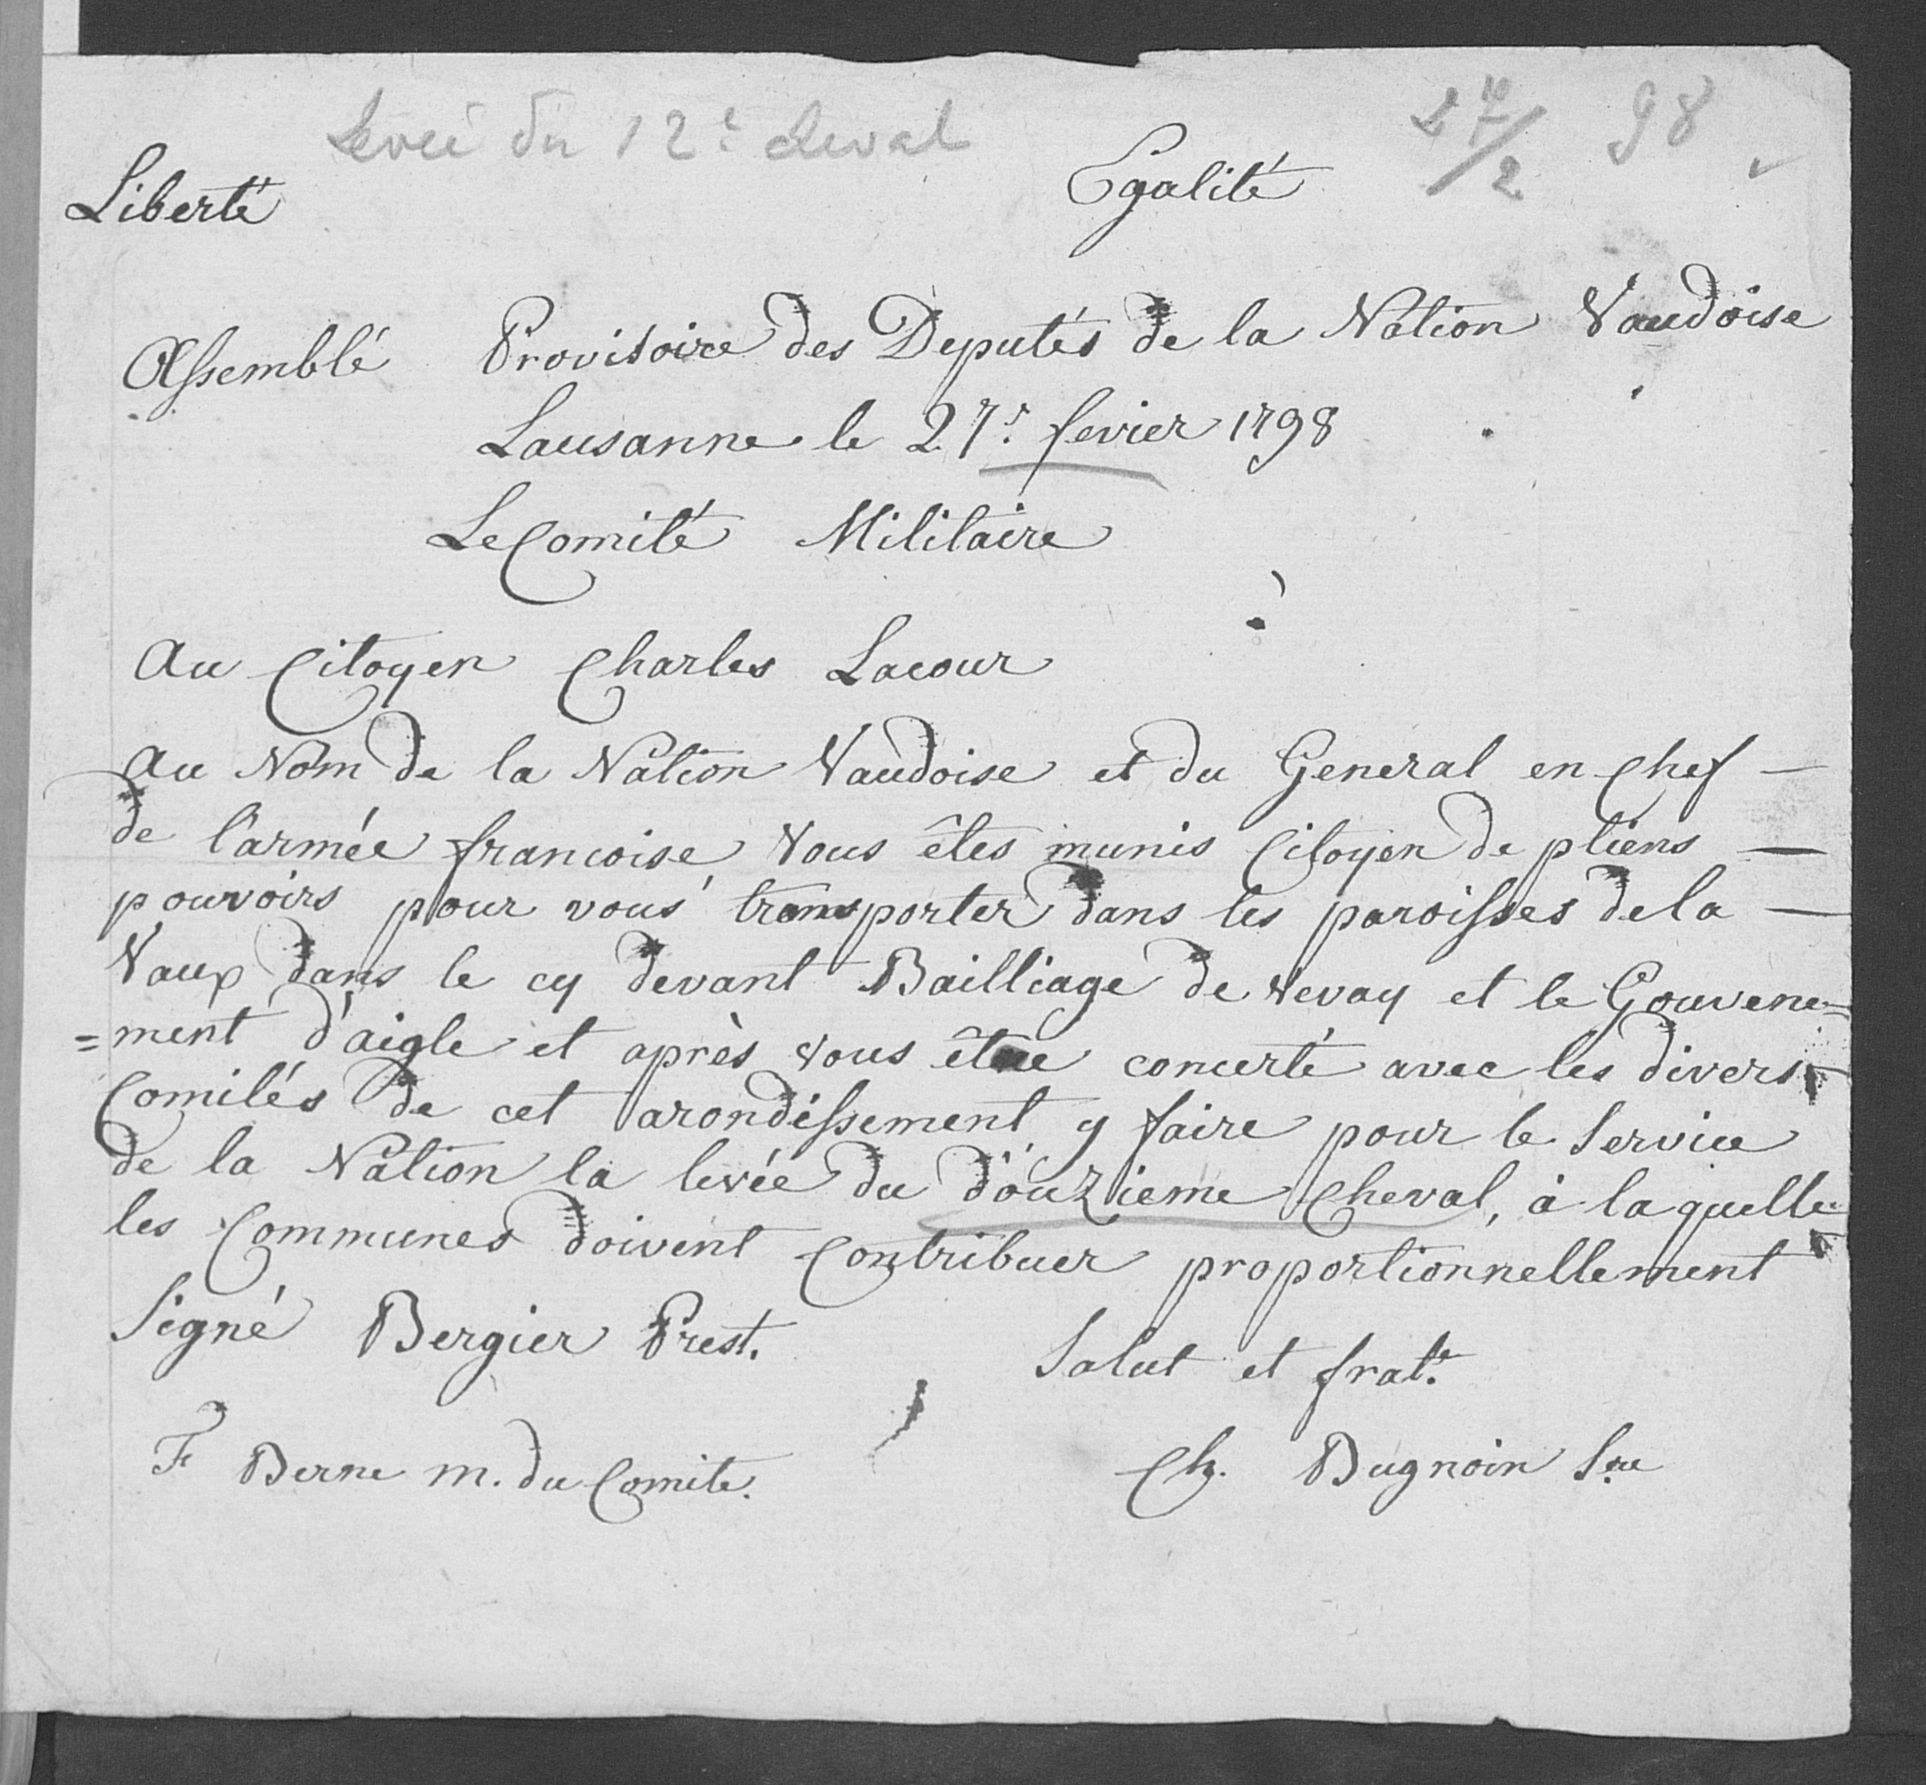 Levée du 12e cheval 27/2 98
Liberté Egalité
Assemblé Provisoire des Deputés de la Nation Vaudoise
Lausanne le 27.r fevier 1798
Le Comité Militaire
Au Citoyen Charles Lacour
Au Nom de la Nation Vaudoise et du General en Chef —
de l'armée francoise, Vous êtes munis Citoyen de pliens —
pouvoirs pour vous transporter dans les paroisses de la —
Vaux dans le cy devant Bailliage de Vevay et le Gouvene=
=ment d'aigle et après vous être concerté avec les divers
Comités de cet arondissement y faire pour le Service
de la Nation la levée du douzieme Cheval, à laquelle
les Communes doivent Contribuer proportionnellement
Signé Bergier Prest. Salut et frat.é
F Berne m. du Comite. Ch. Bugnoin S.re